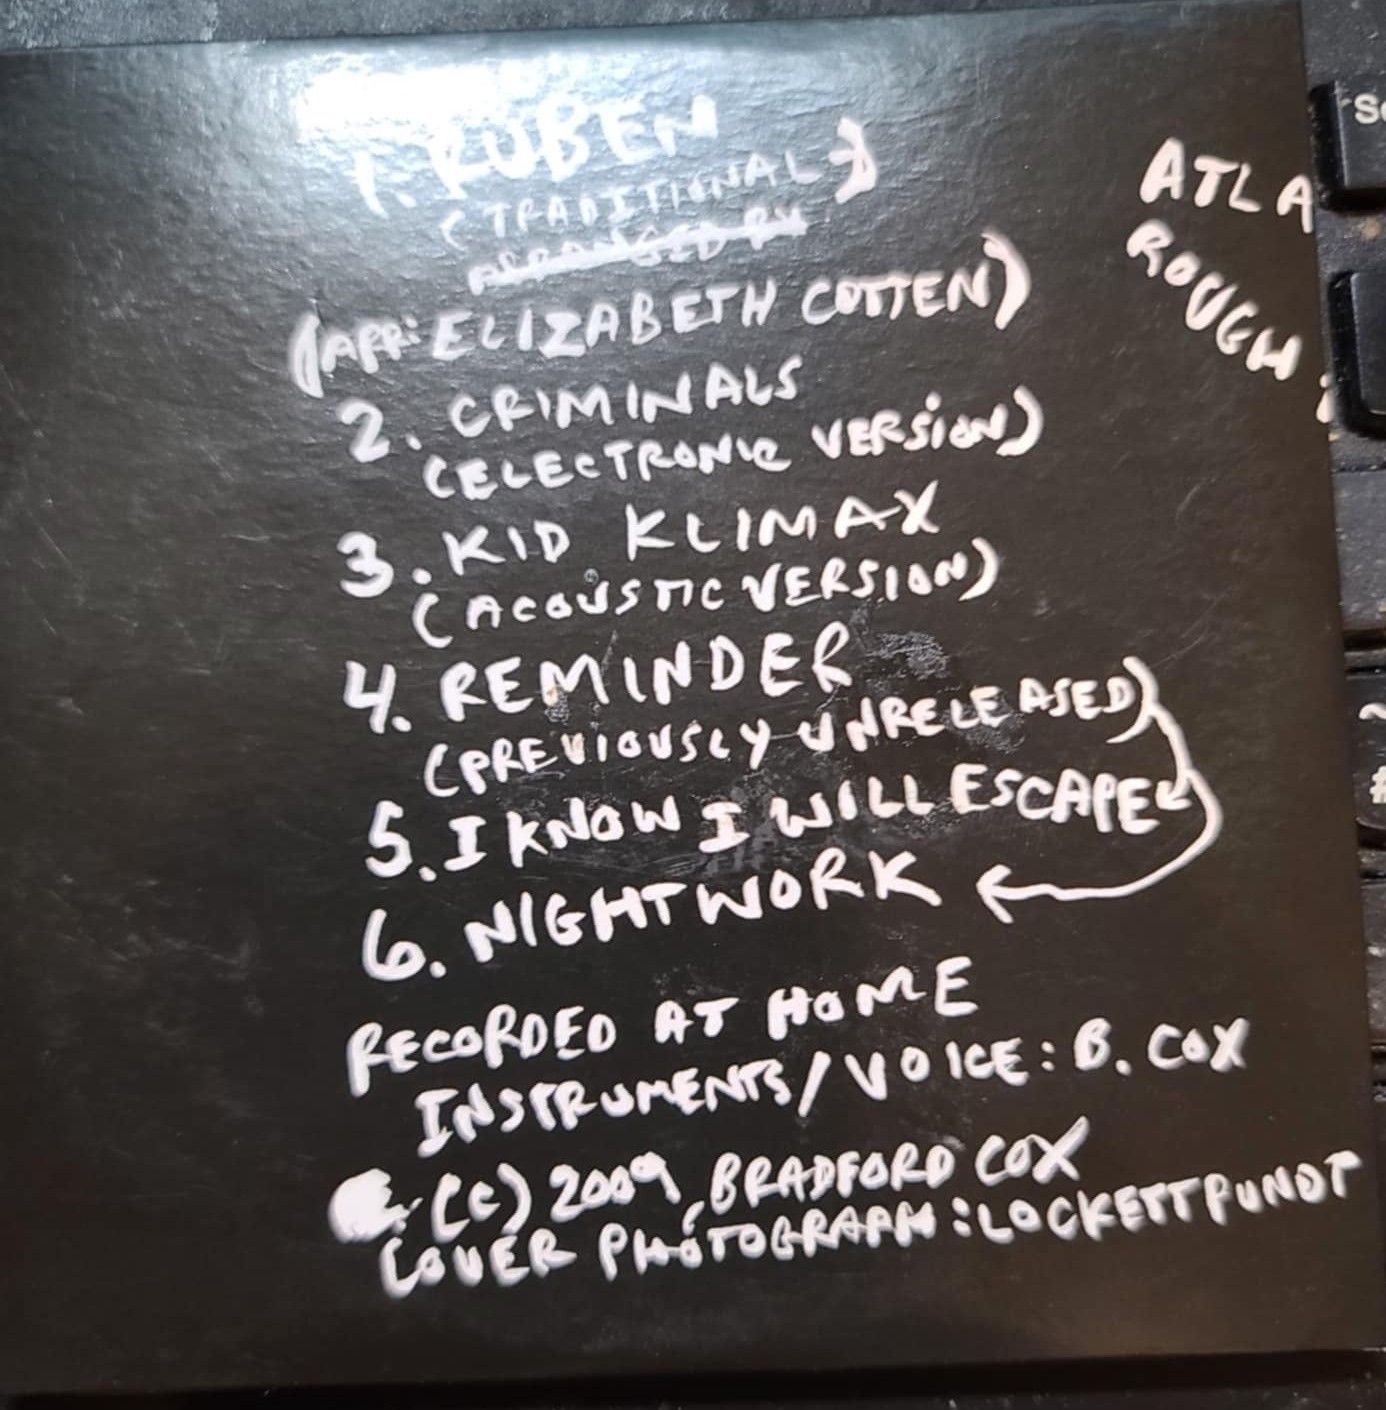 1. RUBEN
(TRADITIONAL)
ARRANGED BY
(ARR: ELIZABETH COTTEN)
2. CRIMINALS
(ELECTRONIC VERSION)
3. KID KLIMAX
(ACOUSTIC VERSION)
4. REMINDER
(PREVIOUSLY UNRELEASED)
5. I KNOW I WILL ESCAPE
6. NIGHTWORK
RECORDED AT HOME
INSTRUMENTS/VOICE: B. COX
(C) 2009, BRADFORD COX
COVER PHOTOGRAPH: LOCKETT PUNDT
ATLA
ROUGH